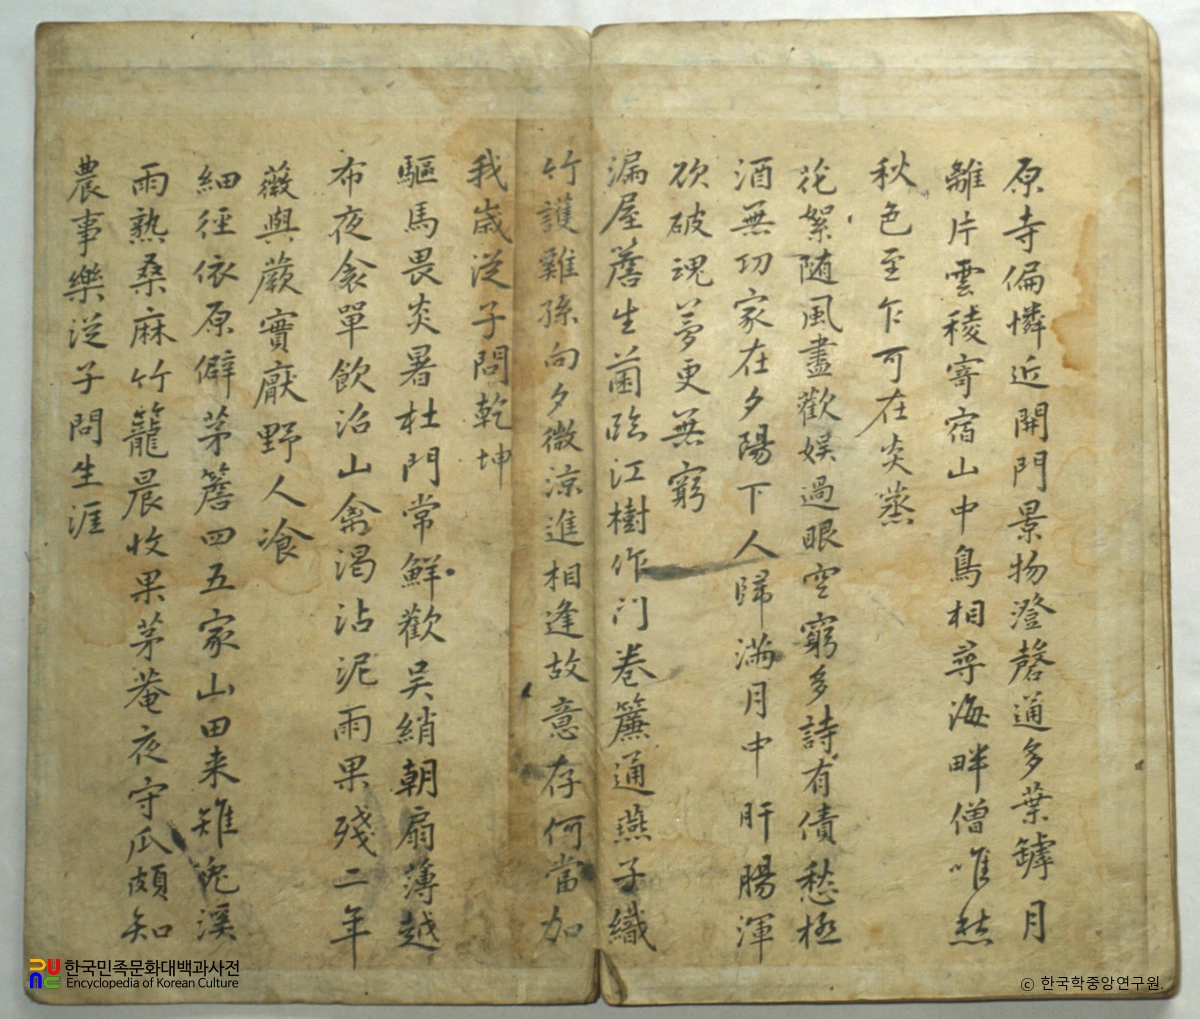 原寺偏憐近開門景物澄磬通多葉罅月
離片雲稜寄宿山中鳥相尋海畔僧唯愁
秋色至乍可在炎蒸
花絮随風盡歡娱過眼空窮多詩有債愁極
酒無功家在夕陽下人歸滿月中肝腸渾
欲破魂夢更無窮
漏屋簷生菌臨江樹作门卷簾通燕子織
竹護雞孫向夕微涼進相逢故意存何當加
我歲從子問乾坤
驅馬畏炎暑杜門常鮮歡吴綃朝扇薄越
布夜衾單飲沿山禽渴沾泥雨果殘二年
薇與蕨實厭野人飡
細徑依原僻茅簷四五家山田来雉兔溪
雨熟桑麻竹籠晨收果茅菴夜守瓜頗知
農事樂從子問生涯
한국민족문화대백과사전
Encyclopedia of Korean Culture
ⓒ 한국학중앙연구원.